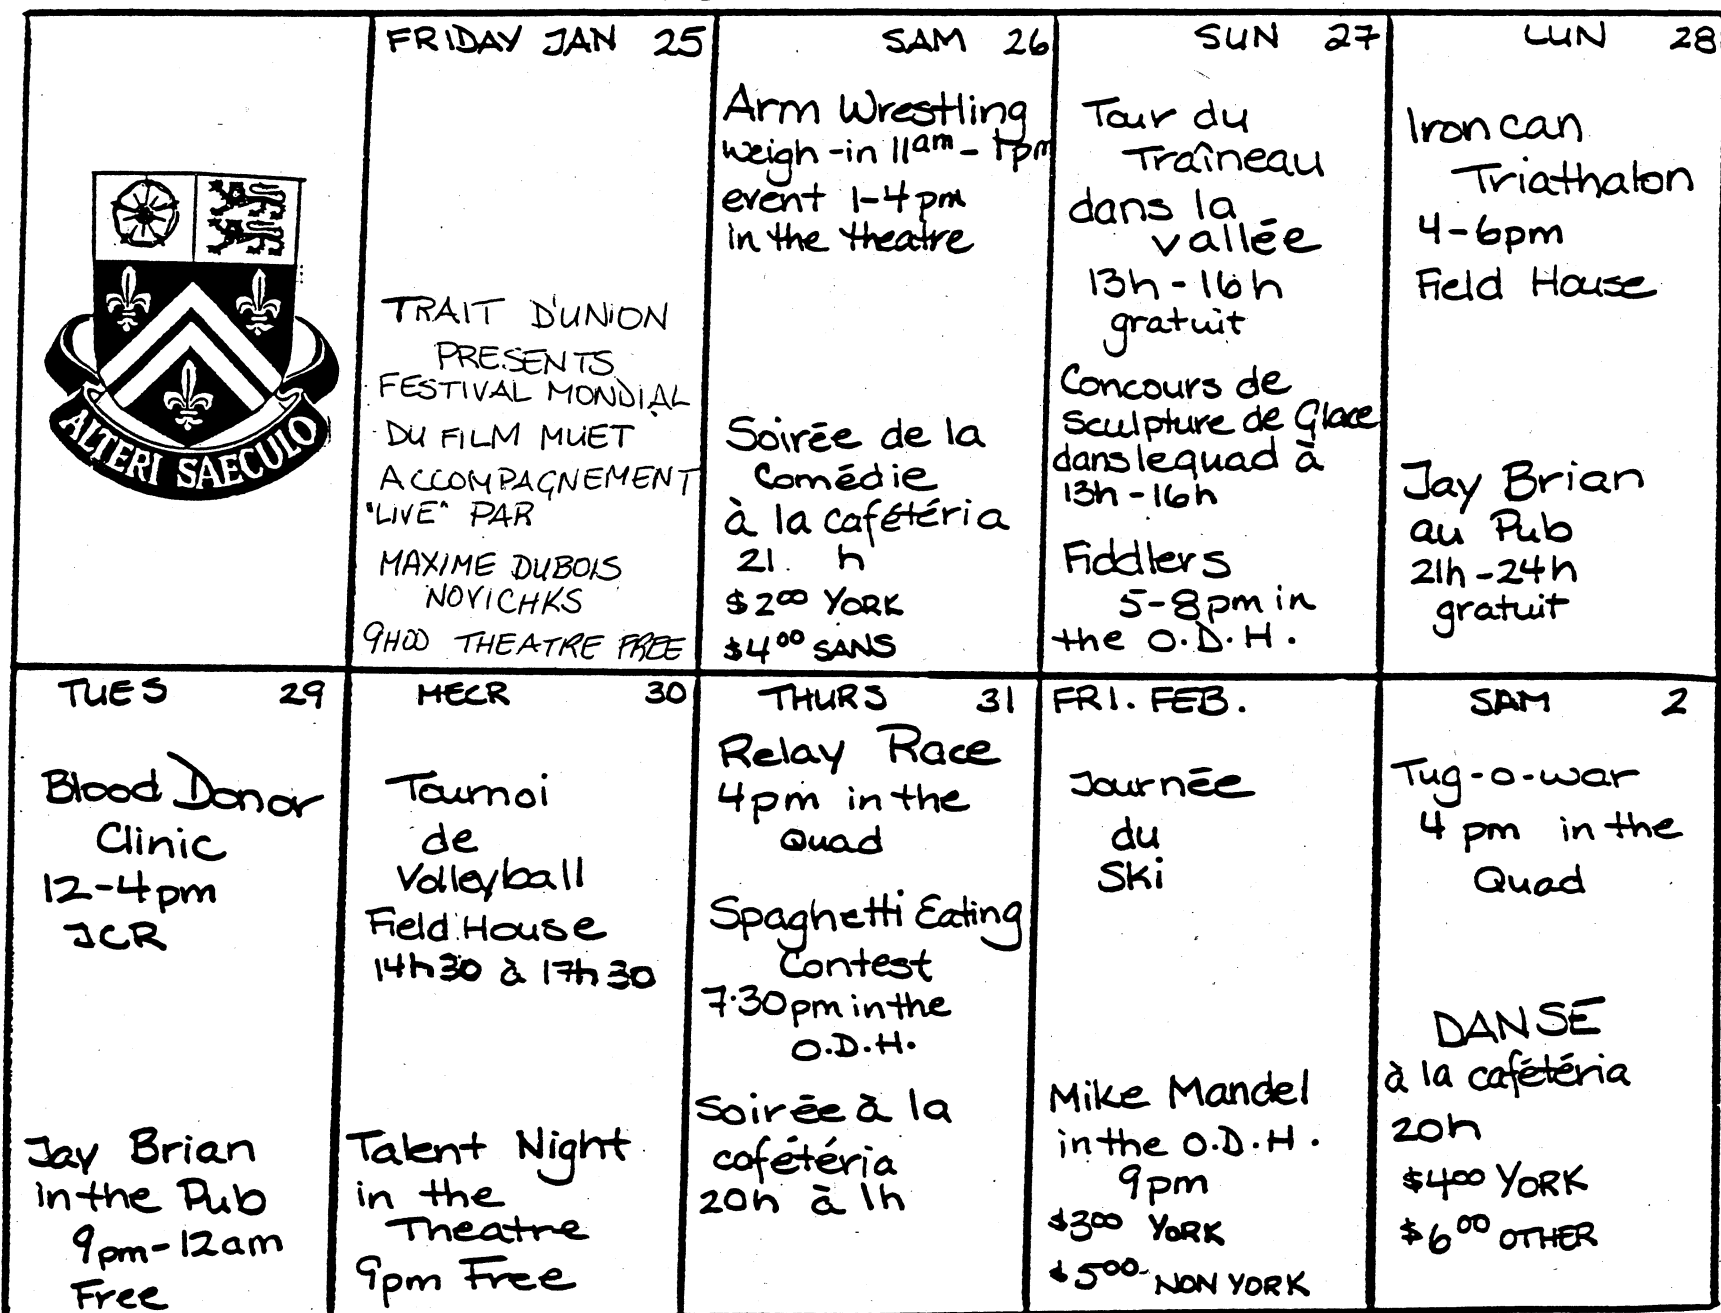 ALTERI SAECULO
FRIDAY JAN 25
TRAIT D'UNION
PRESENTS
FESTIVAL MONDIAL
DU FILM MUET
ACCOMPAGNEMENT
"LIVE" PAR
MAXIME DUBOIS
NOVICHKS
9H00 THEATRE FREE
SAM 26
Arm Wrestling
weigh-in 11am - 1pm
event 1-4pm
in the theatre
Soirée de la
Comédie
à la cafétéria
21 h
$2⁰⁰ YORK
$4⁰⁰ SANS
SUN 27
Tour du
Traîneau
dans la
vallée
13h-16h
gratuit
Concours de
Sculpture de Glace
dans le quad à
13h-16h
Fiddlers
5-8pm in
the O.D.H.
LUN 28
Iron can
Triathalon
4-6pm
Field House
Jay Brian
au Pub
21h-24h
gratuit
TUES 29
Blood Donor
Clinic
12-4pm
JCR
Jay Brian
in the Pub
9pm-12am
Free
MECR 30
Tournoi
de
Volleyball
Field House
14h30 à 17h30
Talent Night
in the
Theatre
9pm Free
THURS 31
Relay Race
4pm in the
Quad
Spaghetti Eating
Contest
7:30pm in the
O.D.H.
Soirée à la
cafétéria
20h à 1h
FRI. FEB.
Journée
du
Ski
Mike Mandel
in the O.D.H.
9pm
$3⁰⁰ YORK
$5⁰⁰ NON YORK
SAM 2
Tug-o-war
4 pm in the
Quad
DANSE
à la cafétéria
20h
$4⁰⁰ YORK
$6⁰⁰ OTHER